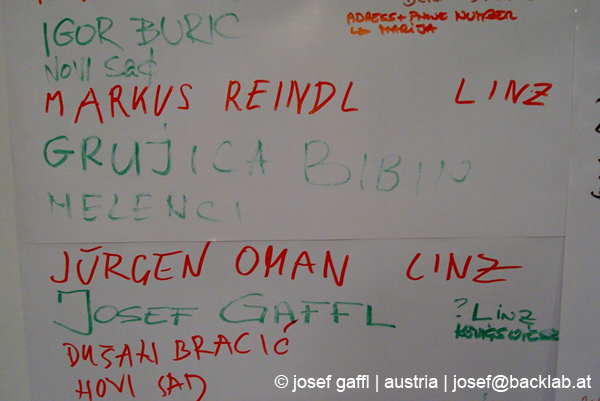 ADRESS + PHONE NUMBER
↳ MARIJA
IGOR BURIC
NOVI SAd
MARKUS REINDL LINZ
GRUJICA BIBIN
MELENCI
JÜRGEN OMAN LINZ
JOSEF GAFFL ? LINZ
DUŠAN BRACIĆ
NOVI SAD
© josef gaffl | austria | josef@backlab.at